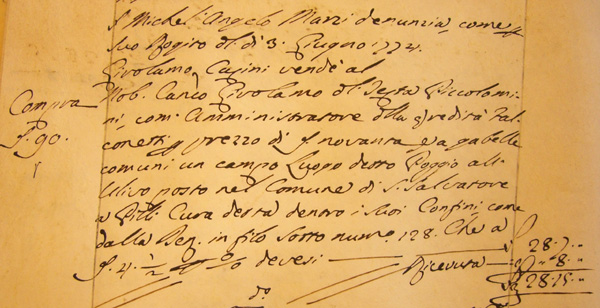 S. Michel Angelo Marzi denunzia, come
suo Rogito dl. dì 3. Giugno 1774.
Girolamo Casini vendè al
Nob. Canco Girolamo dl. Testa Piccolomi=
ni, com. Amministratore dlla eredità Fal=
conetti prezzo di f. novanta, e a gabelle
comuni un campo Luogo detto Poggio all'
Ulivo posto nel Comune di S. Salvatore
a Pilli Cura detta dentro i suoi Confini, come
dalla Den. in filo sotto num. 128. Che a
f. 4. 1/2 % devesi
Compra
f. 90.
28. 7. ..
Ricevuta
.. 8. ..
28. 15. ..
do.